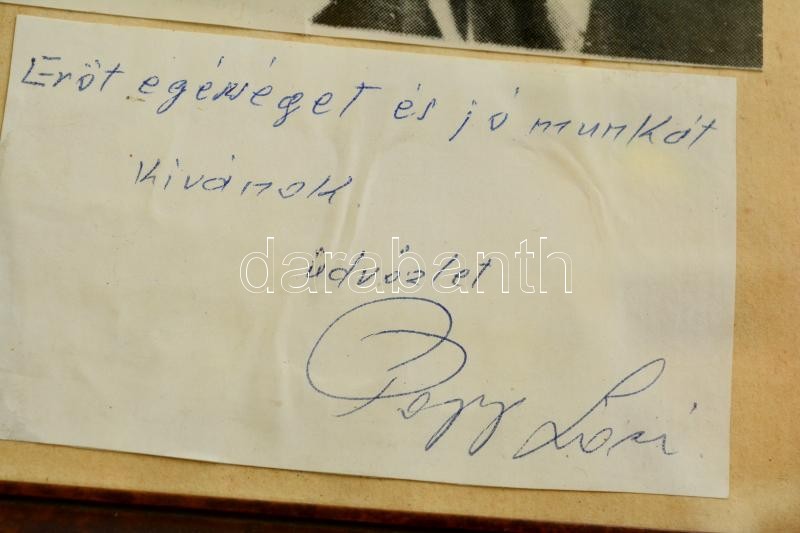 Erőt egésséget és jó munkát
kivánok.
üdvözlet
Papp Laci
darabanth